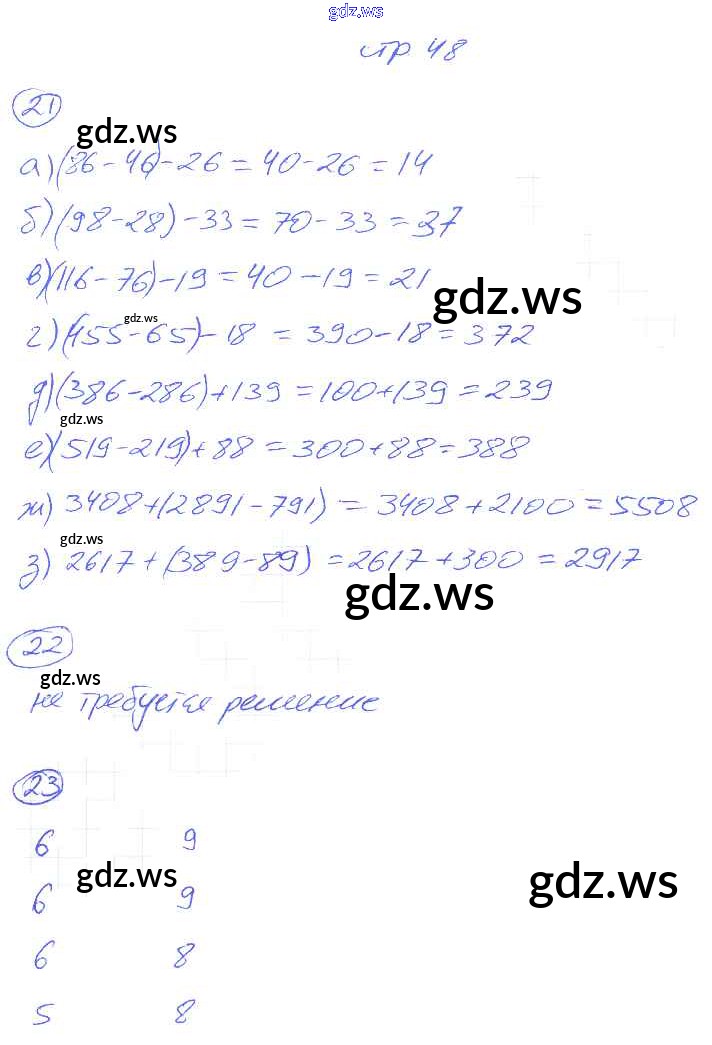 gdz.ws
стр 48
21
gdz.ws
а) (86-46)-26=40-26=14
б) (98-28)-33=70-33=37
в) (116-76)-19=40-19=21
gdz.ws
gdz.ws
г) (455-65)-18=390-18=372
д) (386-286)+139=100+139=239
gdz.ws
е) (519-219)+88=300+88=388
ж) 3408+(2891-791)=3408+2100=5508
gdz.ws
з) 2617+(389-89)=2617+300=2917
gdz.ws
22
gdz.ws
не требуется решение
23
6 9
gdz.ws gdz.ws
6 9
6 8
5 8